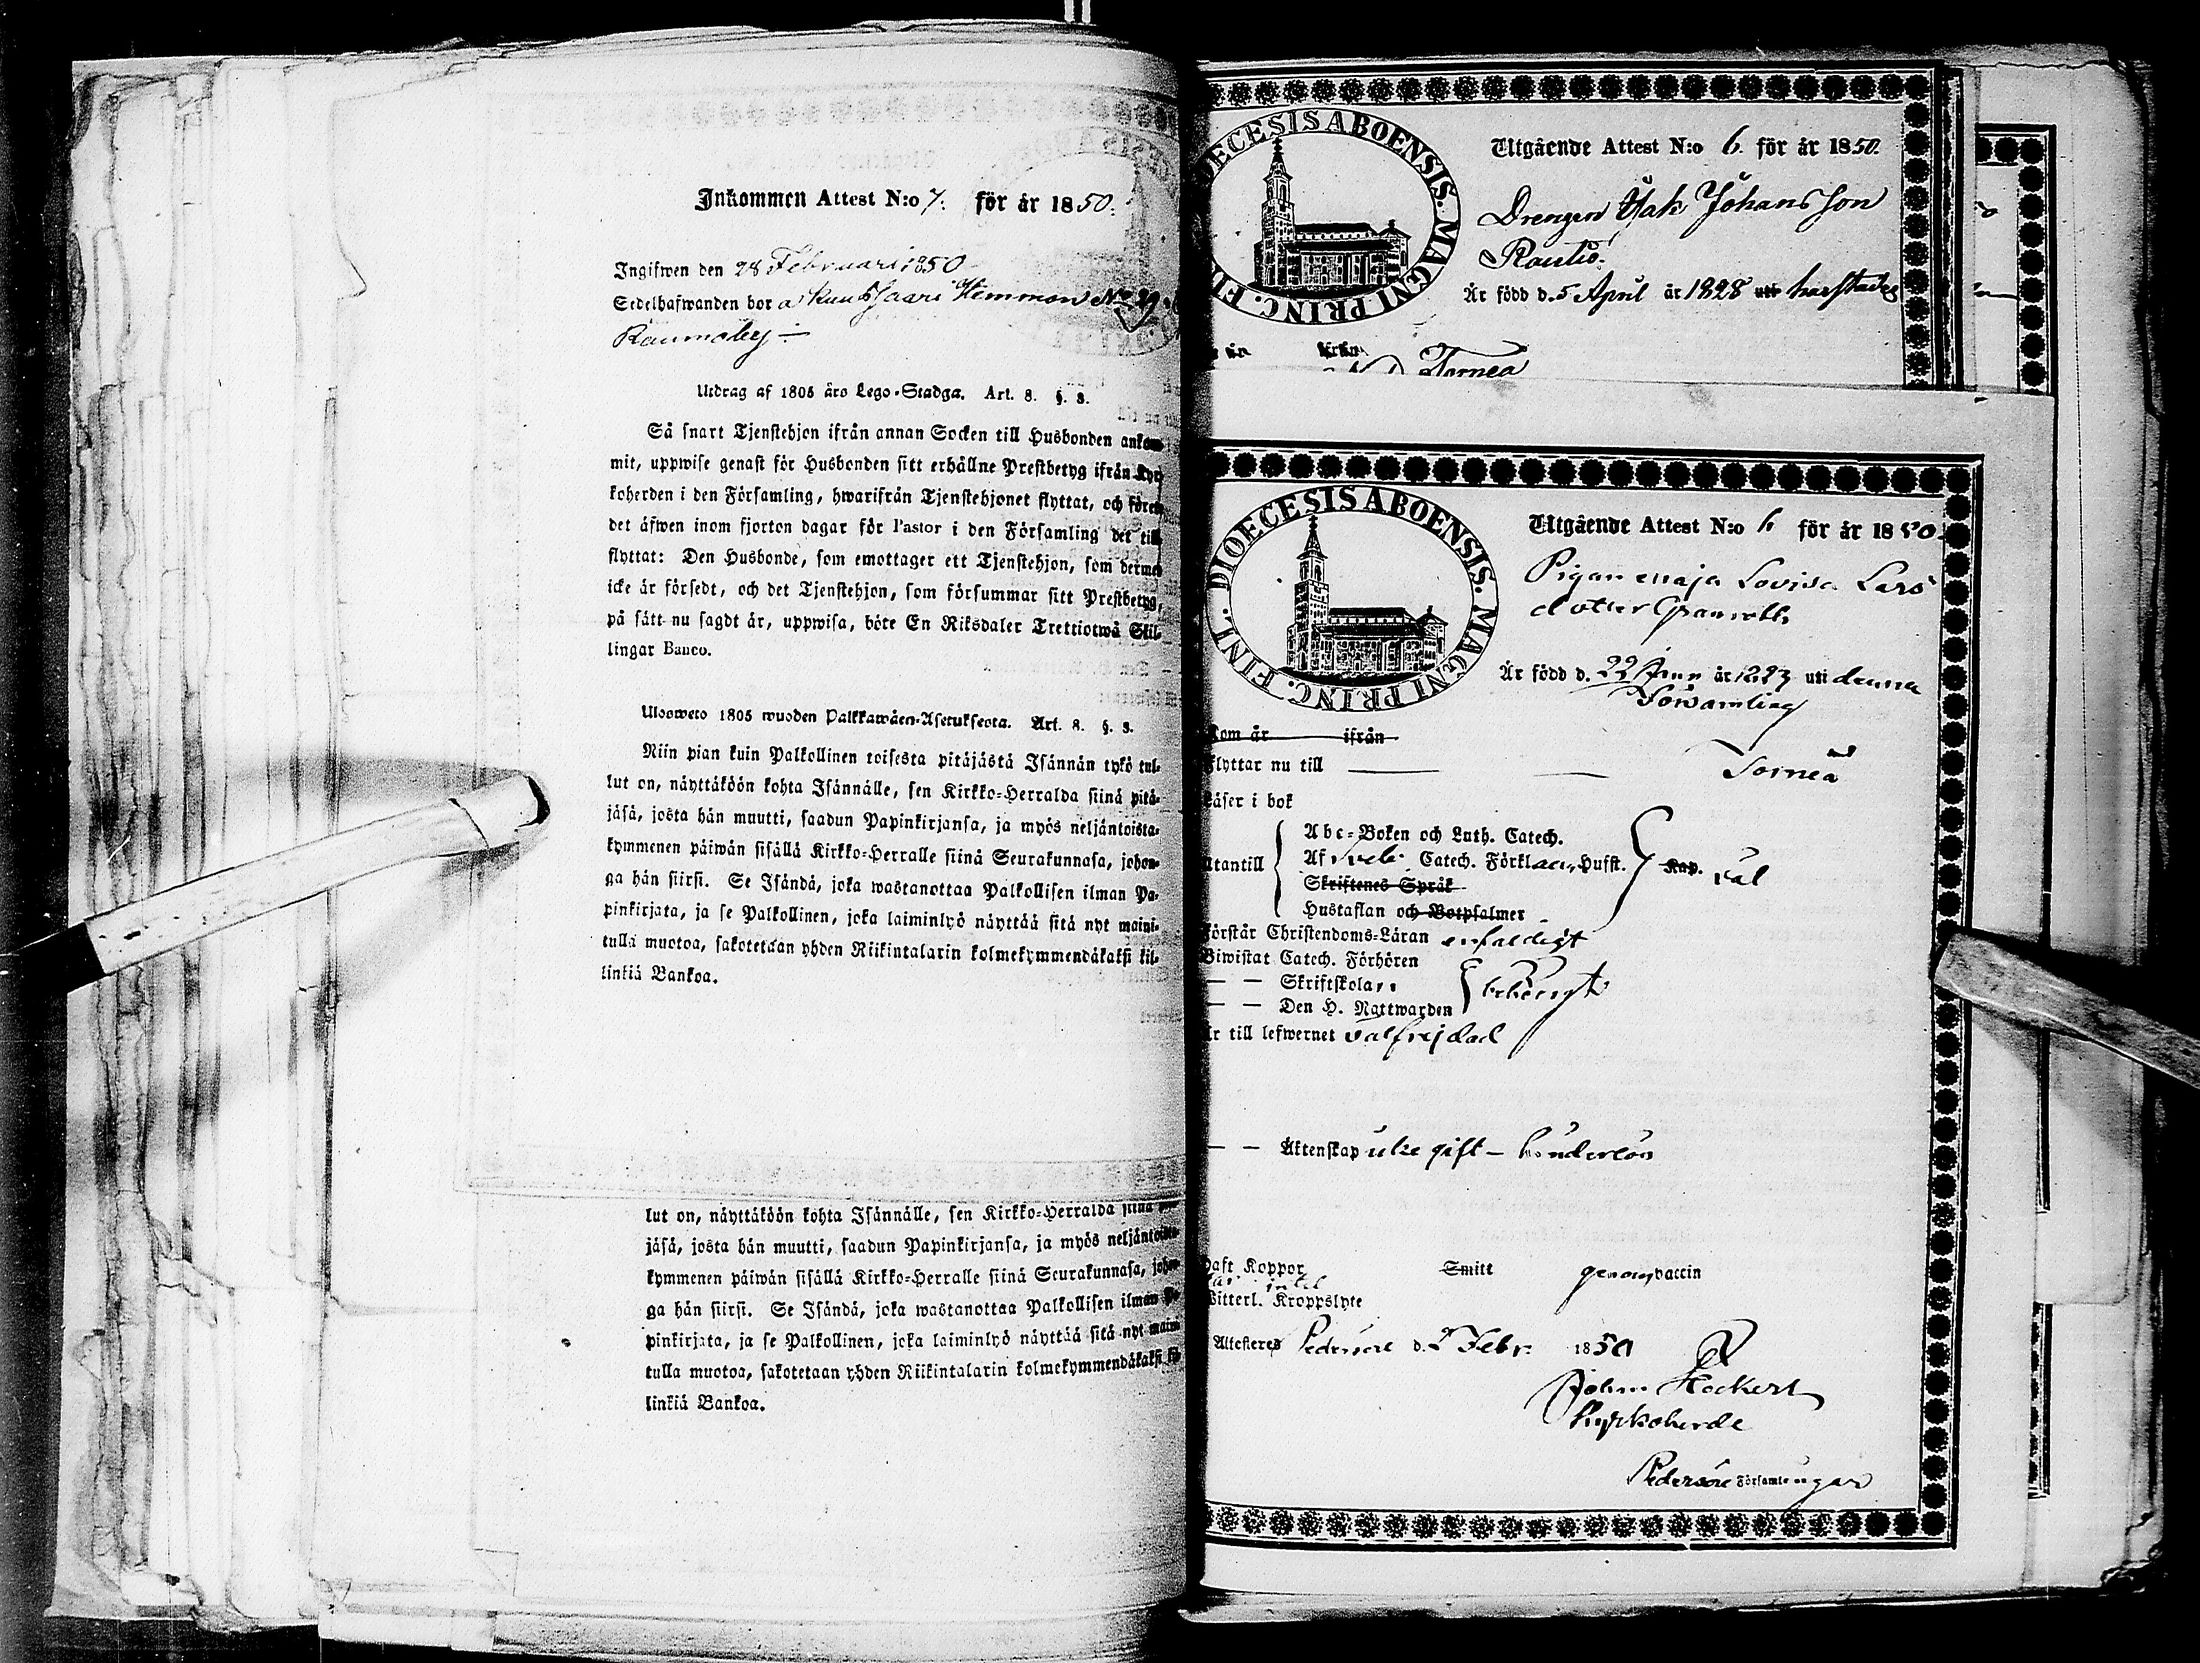 Inkommen Attest N:o 7. för år 1850.
Ingifwen den 28 Februari 1850
Sedelhafwanden bor å Kuusisaari Hemman No 29
Raumoby
Utdrag af 1805 års Lego-Stadga. Art. 8. §. 3.
Så snart Tjenstehjon ifrån annan Socken till Husbonden ankom-
mit, uppwise genast för Husbonden sitt erhållne Prestbetyg ifrån Kyr-
koherden i den Församling, hwarifrån Tjenstehjonet flyttat, och förete
det äfwen inom fjorton dagar för Pastor i den Församling det till
flyttat: Den Husbonde, som emottager ett Tjenstehjon, som dermed
icke är försedt, och det Tjenstehjon, som försummar sitt Prestbetyg,
på sätt nu sagdt är, uppwisa, böte En Riksdaler Trettiotwå Skil-
lingar Banco.
Ulosweto 1805 wuoden Palkkawäen-Asetuksesta. Art. 8. §. 3.
Niin pian kuin Palkollinen toisesta pitäjästä Isännän tykö tul-
lut on, näyttäköön kohta Isännälle, sen Kirkko-Herralda siinä pitä-
jäsä, josta hän muutti, saadun Papinkirjansa, ja myös neljäntoista-
kymmenen päiwän sisällä Kirkko-Herralle siinä Seurakunnasa, johon-
ga hän siirsi. Se Isändä, joka wastanottaa Palkollisen ilman Pa-
pinkirjata, ja se Palkollinen, joka laiminlyö näyttää sitä nyt maini-
tulla muotoa, sakotetaan yhden Riikintalarin kolmekymmendäkaksi kil-
linkiä Bankoa.
lut on, näyttäköön kohta Isännälle, sen Kirkko-Herralda siinä
jäsä, josta hän muutti, saadun Papinkirjansa, ja myös neljäntoista-
kymmenen päiwän sisällä Kirkko-Herralle siinä Seurakunnasa, johon-
ga hän siirsi. Se Isändä, joka wastanottaa Palkollisen ilman Pa-
pinkirjata, ja se Palkollinen, joka laiminlyö näyttää sitä nyt maini-
tulla muotoa, sakotetaan yhden Riikintalarin kolmekymmendäkaksi kil-
linkiä Bankoa.
DIOECESIS ABOENSIS. MAGNI PRINC. FI
Utgående Attest N:o 6. för år 1850.
Drengen Isak Johansson
Rautio.
Är född d. 5 April år 1828 uti härstädes
Torneå
DIOECESIS ABOENSIS. MAGNI PRINC. FINL.
Utgående Attest N:o 6 för år 1850.
Pigan Maja Lovisa Lars
dotter Granroth
Är född d. 22 år 1823 uti denna
Församling
Kom år ifrån
Flyttar nu till Torneå
Läser i bok
Utantill
Abc-Boken och Luth. Catech.
Af Sveb. Catech. Förklaen, Hufst.
Skriftenes Språk
Hustaflan och Botpsalmer
Kap. väl
Förstår Christendoms-Läran enfaldigt
Biwistat Catech. Förhören
— — Skriftskolan
— — Den H. Nattwarden
behörigt
Är till lefwernet välfrejdad
— — Äktenskap icke gift – hinderlös
Haft Koppor Smitt genom vaccin
Witterl. Kroppslyte
Attesteres Pedersöre d. 2 Febr. 1850
Johan Hockert
Kyrkoherde
Pedersöre Församlingar